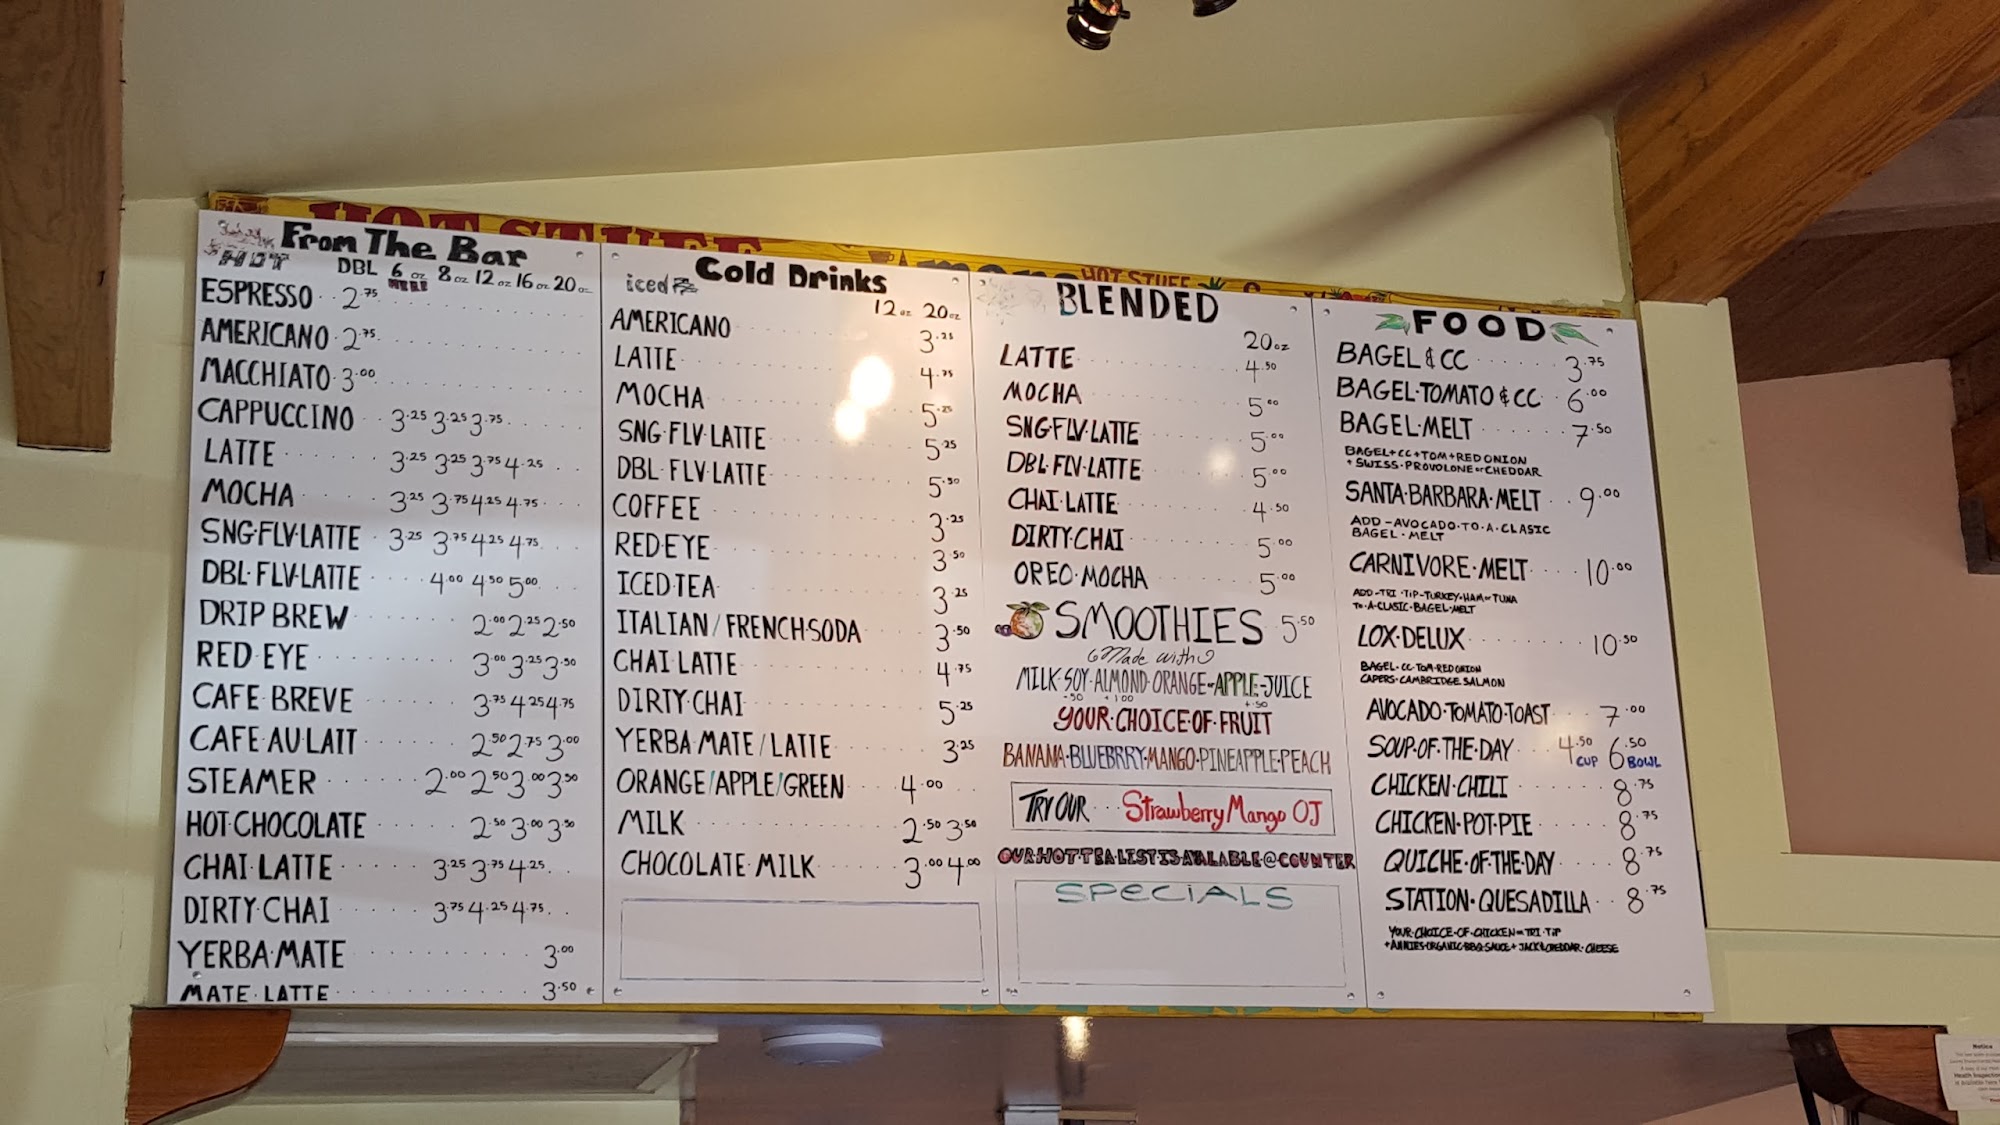 HOT STUFF
HOT STUFF
From The Bar
HOT
DBL 6 oz 8 oz 12 oz 16 oz 20 oz
ESPRESSO 2.75
AMERICANO 2.75
MACCHIATO 3.00
CAPPUCCINO 3.25 3.25 3.75
LATTE 3.25 3.25 3.75 4.25
MOCHA 3.25 3.75 4.25 4.75
SNG·FLV·LATTE 3.25 3.75 4.25 4.75
DBL·FLV·LATTE 4.00 4.50 5.00
DRIP BREW 2.00 2.25 2.50
RED EYE 3.00 3.25 3.50
CAFE·BREVE 3.75 4.25 4.75
CAFE·AU·LAIT 2.50 2.75 3.00
STEAMER 2.00 2.50 3.00 3.50
HOT·CHOCOLATE 2.50 3.00 3.50
CHAI·LATTE 3.25 3.75 4.25
DIRTY·CHAI 3.75 4.25 4.75
YERBA·MATE 3.00
MATE·LATTE 3.50
Cold Drinks
iced
12 oz 20 oz
AMERICANO 3.25
LATTE 4.75
MOCHA 5.25
SNG·FLV·LATTE 5.25
DBL·FLV·LATTE 5.50
COFFEE 3.25
RED·EYE 3.50
ICED·TEA 3.25
ITALIAN/FRENCH·SODA 3.50
CHAI·LATTE 4.75
DIRTY·CHAI 5.25
YERBA·MATE/LATTE 3.25
ORANGE/APPLE/GREEN 4.00
MILK 2.50 3.50
CHOCOLATE·MILK 3.00 4.00
BLENDED
20oz
LATTE 4.50
MOCHA 5.00
SNG·FLV·LATTE 5.00
DBL·FLV·LATTE 5.00
CHAI·LATTE 4.50
DIRTY·CHAI 5.00
OREO·MOCHA 5.00
SMOOTHIES 5.50
Made with
MILK·SOY·ALMOND·ORANGE-APPLE-JUICE
+.50 +1.00 +.50
YOUR·CHOICE·OF·FRUIT
BANANA·BLUEBRRY·MANGO·PINEAPPLE·PEACH
TRY OUR Strawberry Mango OJ
OUR·HOT·TEA·LIST·IS·AVALABLE@COUNTER
SPECIALS
FOOD
BAGEL & CC 3.75
BAGEL·TOMATO & CC 6.00
BAGEL·MELT 7.50
BAGEL+CC+TOM+RED ONION
+ SWISS·PROVOLONE or CHEDDAR
SANTA·BARBARA·MELT 9.00
ADD-AVOCADO·TO·A·CLASIC
BAGEL·MELT
CARNIVORE·MELT 10.00
ADD-TRI·TIP-TURKEY·HAM or TUNA
TO·A·CLASIC·BAGEL·MELT
LOX·DELUX 10.50
BAGEL·CC·TOM·RED ONION
CAPERS·CAMBRIDGE SALMON
AVOCADO·TOMATO·TOAST 7.00
SOUP·OF·THE·DAY 4.50 CUP 6.50 BOWL
CHICKEN·CHILI 8.75
CHICKEN·POT·PIE 8.75
QUICHE·OF·THE·DAY 8.75
STATION·QUESADILLA 8.75
YOUR·CHOICE·OF·CHICKEN or TRI·TIP
+ANNIES·ORGANIC·BBQ·SAUCE + JACK&CHEDDAR·CHEESE
Notice